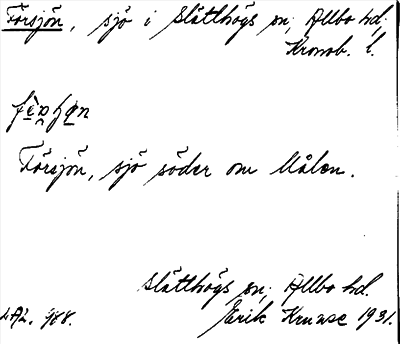 Försjön, sjö i Slätthögs sn; Allbo hd;
Kronob. l.
Försjön, sjö söder om Målen.
Slätthögs sn; Allbo hd.
Erik Kruuse 1931.